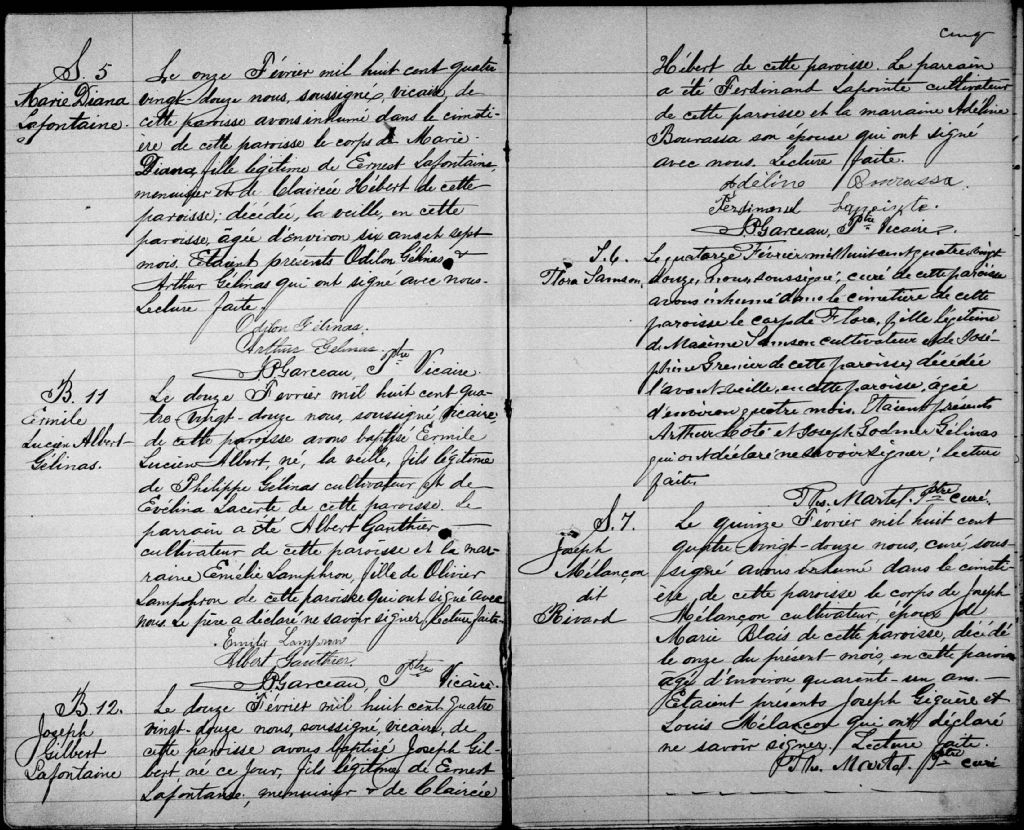 S. 5
Marie Diana
Lafontaine.
Le onze Février mil huit cent quatre
vingt-douze nous, soussigné, vicaire, de
cette paroisse avons inhumé dans le cimeti-
ère de cette paroisse le corps de Marie
Diana, fille légitime de Ernest Lafontaine,
menuisier et de Claireée Hébert de cette
paroisse; décédée, la veille, en cette
paroisse, âgée d'environ six ans et sept
mois. Etaient présents Odilon Gélinas &
Arthur Gélinas qui ont signé avec nous.
Lecture faite.
Odilon Gélinas.
Arthur Gelinas.
JP Garceau, Ptre Vicaire.
B. 11
Ermile
Lucien Albert
Gélinas.
Le douze Février mil huit cent qua-
tre vingt-douze nous, soussigné, vicaire,
de cette paroisse avons baptisé Ermile
Lucien Albert, né, la veille, fils légitime
de Philippe Gélinas cultivateur et de
Evelina Lacerte de cette paroisse. Le
parrain a été Albert Gauthier
cultivateur de cette paroisse et la mar-
raine Emélie Lamphron, fille de Olivier
Lamphron de cette paroisse qui ont signé avec
nous. Le père a déclaré ne savoir signer, lecture faite.
Emilie Lampron
Albert Gauthier.
JP Garceau, Ptre Vicaire.
B. 12.
Joseph
Gilbert
Lafontaine
Le douze Février mil huit cent quatre
vingt-douze nous, soussigné, vicaire, de
cette paroisse avons baptisé Joseph Gil-
bert, né ce jour, fils légitime de Ernest
Lafontaine, menuisier & de Claireée
cinq
Hébert de cette paroisse. Le parrain
a été Ferdinand Lapointe cultivateur
de cette paroisse et la marraine Adéline
Bourassa son épouse qui ont signé
avec nous. Lecture faite.
Adéline Bourassa.
Ferdinand Lapointe.
JP Garceau, Ptre Vicaire.
S. 6.
Flora Samson,
Le quatorze Février mil huit cent quatre vingt
douze, nous, soussigné, curé de cette paroisse
avons inhumé dans le cimetière de cette
paroisse le corps de Flora, fille légitime
de Maxime Samson cultivateur et de José-
phine Grenier de cette paroisse, décédée
l'avant veille, en cette paroisse, âgée
d'environ quatre mois. Etaient présents
Arthur Coté et Joseph Godmer Gélinas
qui ont déclaré ne savoir signer; lecture
faite.
Ths. Martel. Ptre curé.
S. 7.
Joseph
Mélançon
dit
Rivard
Le quinze Février mil huit cent
quatre vingt-douze nous, curé, sous-
signé avons inhumé dans le cimeti-
ère, de cette paroisse le corps de Joseph
Mélançon cultivateur, époux de
Marie Blais de cette paroisse, décédé
le onze du présent mois, en cette paroisse
agé d'environ quarante-un ans.
Etaient présents Joseph Giguère et
Louis Mélançon qui ont déclaré
ne savoir signer. Lecture faite.
Ths. Martel. Ptre curé